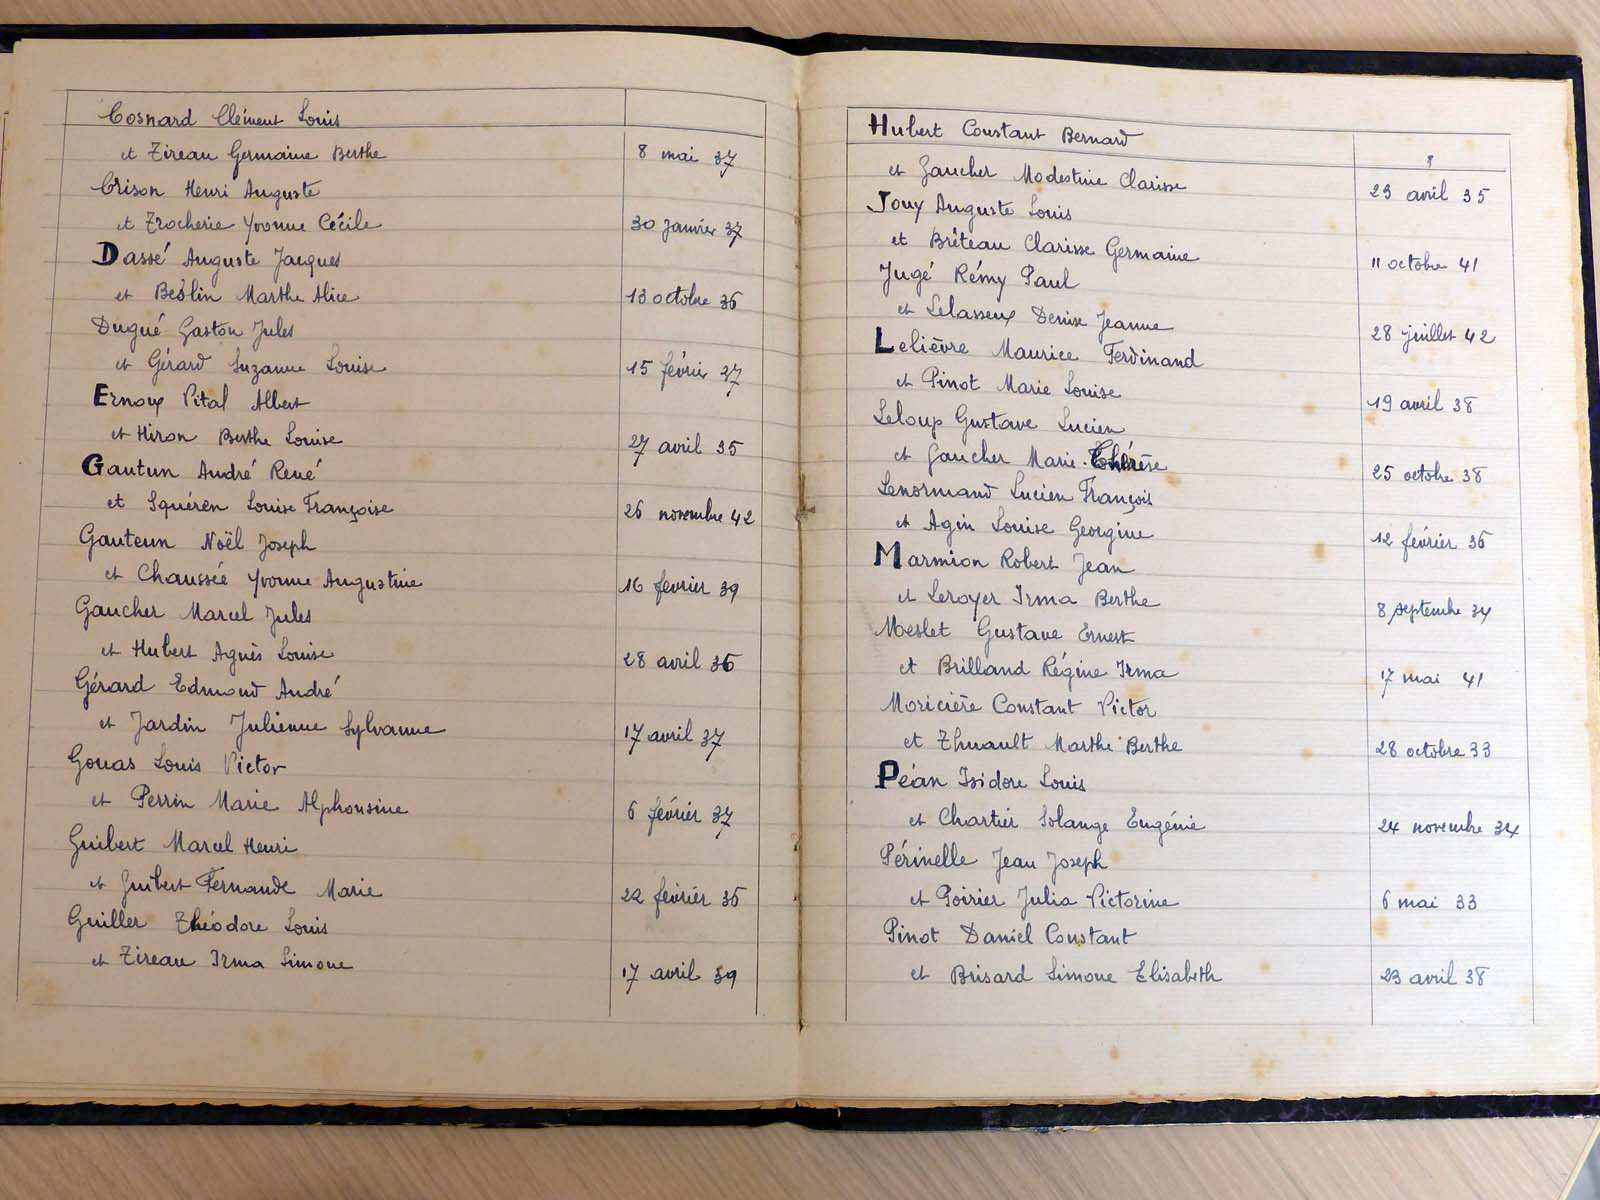 Cosnard Clément Louis
et Tireau Germaine Berthe 8 mai 37
Crison Henri Auguste
et Trocherie Yvonne Cécile 30 janvier 37
Dassé Auguste Jacques
et Beslin Marthe Alice 13 octobre 36
Dugué Gaston Jules
et Gérard Suzanne Louise 15 février 37
Ernoux Vital Albert
et Hiron Berthe Louise 27 avril 35
Gautun André René
et Squéren Louise Françoise 26 novembre 42
Gauteun Noël Joseph
et Chaussée Yvonne Augustine 16 fevrier 39
Gaucher Marcel Jules
et Hubert Agnès Louise 28 avril 36
Gérard Edmond André
et Jardin Julienne Sylvanne 17 avril 37
Gouas Louis Victor
et Perrin Marie Alphonsine 6 février 37
Guibert Marcel Henri
et Guibert Fernande Marie 22 février 36
Guiller Théodore Louis
et Tireau Irma Simone 17 avril 39
Hubert Constant Bernard
et Gaucher Modestine Clarisse 23 avril 35
Jouy Auguste Louis
et Bréteau Clarisse Germaine 11 octobre 41
Jugé Rémy Paul
et Lelasseux Denise Jeanne 28 juillet 42
Lelièvre Maurice Ferdinand
et Pinot Marie Louise 19 avril 38
Leloup Gustave Lucien
et Gaucher Marie-Thérèse 25 octobre 38
Lenormand Lucien François
et Agin Louise Georgine 12 février 36
Marmion Robert Jean
et Leroyer Irma Berthe 8 septembre 34
Meslet Gustave Ernest
et Brilland Régine Irma 17 mai 41
Moricière Constant Victor
et Thuault Marthe Berthe 28 octobre 33
Péan Isidore Louis
et Chartier Solange Eugénie 24 novembre 34
Périnelle Jean Joseph
et Poirier Julia Victorine 6 mai 33
Pinot Daniel Constant
et Brisard Simone Elisabeth 23 avril 38